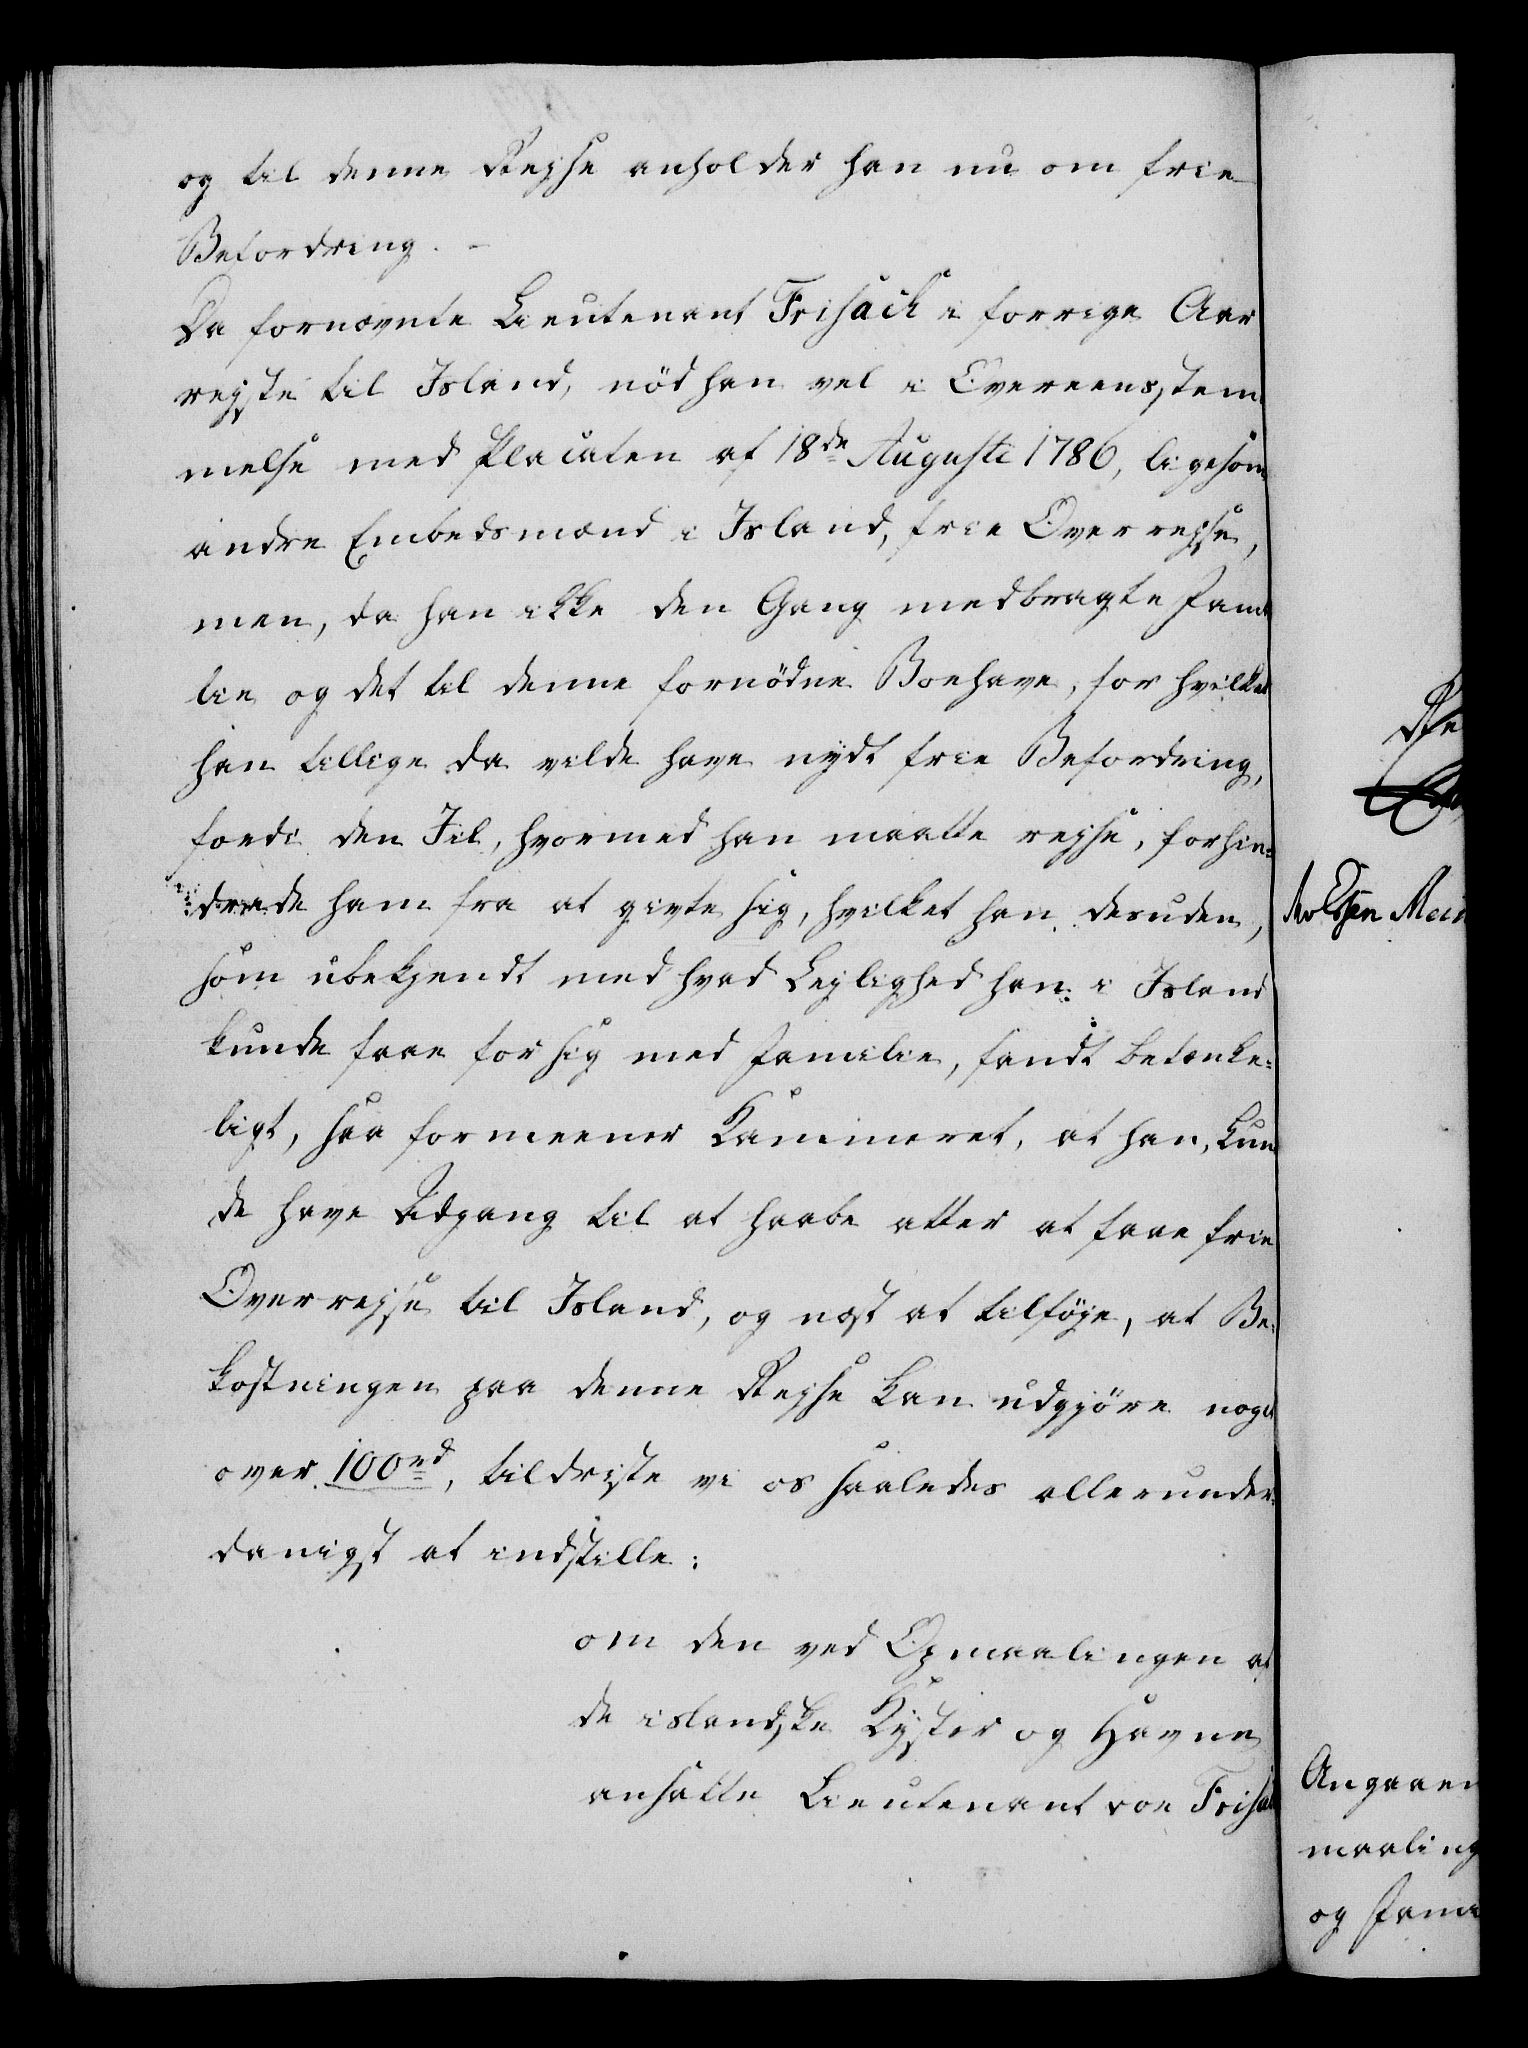 og til denne Rejse anholder han nu om frie
Befordring. -
Da fornævnte Lieutenant Frisach i forrige Aar
rejste til Island, nöd han vel i Overeensstem
melse med Placaten af 18de Augusti 1786, ligesom
andre Embedsmænd i Island, frie Overrejse,
men, da han ikke den Gang medbragte Fami
lie og det til denne fornödne Boehave, for hvilket
han tillige da vilde have nydt frie Befordring,
fordi den Iil, hvormed han maatte rejse, forhin=
drede ham fra at givte sig, hvilket han desuden,
som ubekjendt med hvad Lejlighed han i Island
kunde faae for sig med Familie, fandt betænke=
ligt, saa formeener Kammeret, at han kun
de have Adgang til at haabe atter at faae frie
Overrejse til Island, og næst at tilföje, at Be=
kostningen paa denne Rejse kan udgjöre noget
over 100rd, tildriste vi os saaledes allerunder=
danigst at indstille:
om den ved Opmaalingen af
de islandske Kyster og Havne
ansatte Lieutenant von Frisach
Angaaen
maaling
og Fami